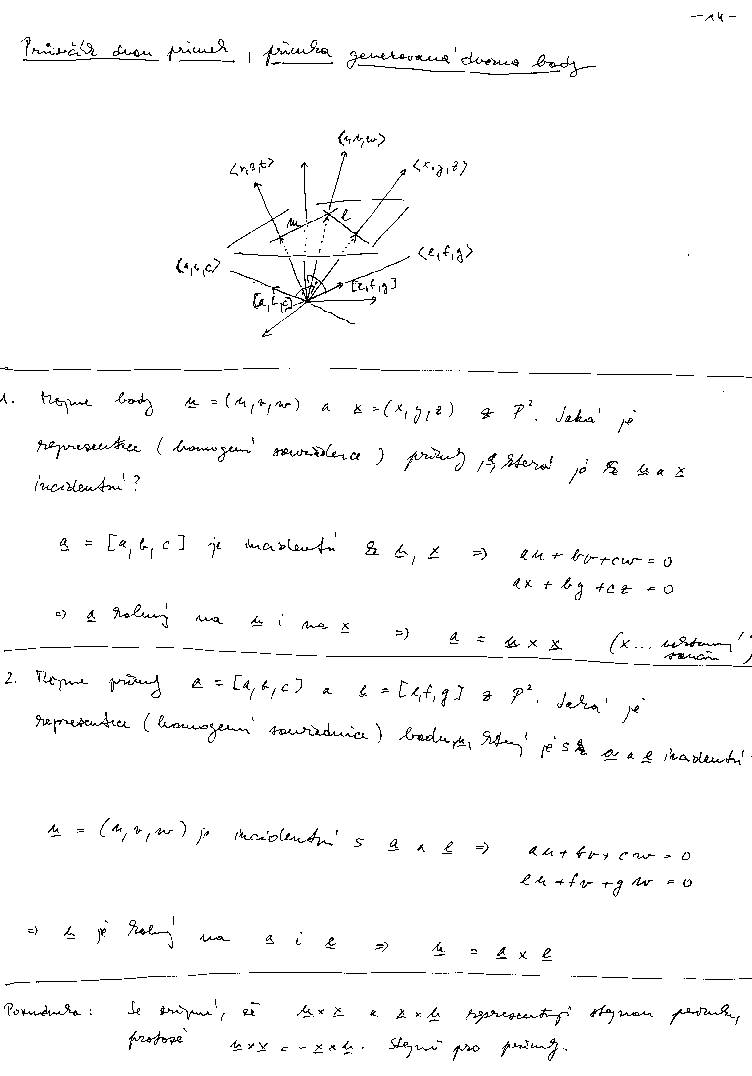 -14-
Průsečík dvou přímek, přímka generovaná dvoma body
⟨u,v,w⟩
⟨r,s,t⟩ ⟨x,y,z⟩
m l
⟨a,b,c⟩ ⟨e,f,g⟩
[a,b,c] [e,f,g]
1. Mějme body u = (u,v,w) a x = (x,y,z) z P². Jaká je
representace (homogení souřadnice) přímky, která je s u a x
incidentní?
a = [a,b,c] je incidentní s u, x ⇒ au + bv + cw = 0
ax + by + cz = 0
⇒ a kolmý na u i na x ⇒ a = u × x (x... vektorový
součin)
2. Mějme přímky a = [a,b,c] a e = [e,f,g] z P². Jaká je
representace (homogení souřadnice) bodu u, který je s a a e incidentní
u = (u,v,w) je incidentní s a a e ⇒ au + bv + cw = 0
eu + fv + gw = 0
⇒ u je kolmý na a i e ⇒ u = a × e
Poznámka: Je zřejmé, že u × x a x × u representují stejnou přímku,
protože u × x = - x × u. Stejně pro přímky.